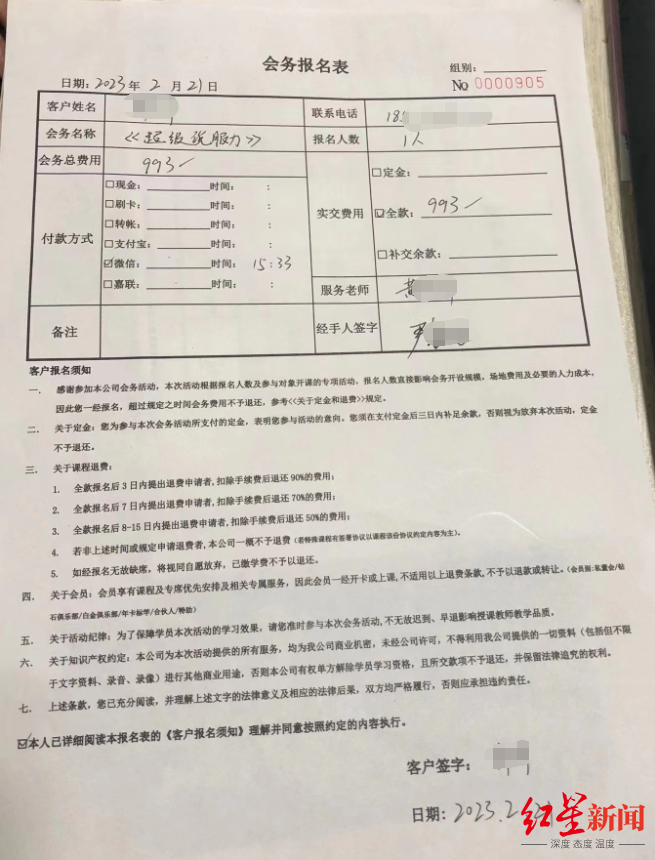 会务报名表
日期：2023年 2 月 21日
组别：
No 0000905
客户姓名
联系电话 18
会务名称 《超级说服力》 报名人数 1人
会务总费用 993/
付款方式
□现金： 时间： ：
□刷卡： 时间： ：
□转帐： 时间： ：
□支付宝： 时间： ：
☑微信： 时间： 15：33
□嘉联： 时间： ：
实交费用
□定金：
☑全款： 993/
□补交余款：
服务老师 黄
备注
经手人签字
客户报名须知
一. 感谢参加本公司会务活动，本次活动根据报名人数及参与对象开课的专项活动，报名人数直接影响会务开设规模，场地费用及必要的人力成本，
因此您一经报名，超过规定之时间会务费用不予退还，参考<<关于定金和退费>>规定。
二. 关于定金：您为参与本次会务活动所支付的定金，表明您参与活动的意向，您须在支付定金后三日内补足余款，否则视为放弃本次活动，定金
不予退还。
三. 关于课程退费：
1. 全款报名后3日内提出退费申请者,扣除手续费后退还90%的费用；
2. 全款报名后7日内提出退费申请者,扣除手续费后退还70%的费用；
3. 全款报名后8-15日内提出退费申请者,扣除手续费后退还50%的费用；
4. 若非上述时间或规定申请退费者,本公司一概不予退费（若特殊课程有签署协议以课程该份协议约定内容为主）。
5. 如经报名无故缺席，将视同自愿放弃，已缴学费不予以退还。
四. 关于会员：会员享有课程及专席优先安排及相关专属服务，因此会员一经开卡或上课,不适用以上退费条款,不予以退款或转让。（会员指:私董会/钻
石俱乐部/白金俱乐部/年卡标竿/合伙人/特助）
五. 关于活动纪律：为了保障学员本次活动的学习效果，请您准时参与本次会务活动,不无故迟到、早退影响授课教师教学品质。
六. 关于知识产权约定：本公司为本次活动提供的所有服务，均为我公司商业机密，未经公司许可，不得利用我公司提供的一切资料（包括但不限
于文字资料、录音、录像）进行其他商业用途，否则本公司有权单方解除学员学习资格，且所交款项不予退还，并保留法律追究的权利。
七. 上述条款，您已充分阅读，并理解上述文字的法律意及相应的法律后果，双方均严格履行，否则应承担违约责任。
☑本人已详细阅读本报名表的《客户报名须知》理解并同意按照约定的内容执行。
客户签字：
日期：2023.2.21
红星新闻
深度 态度 温度